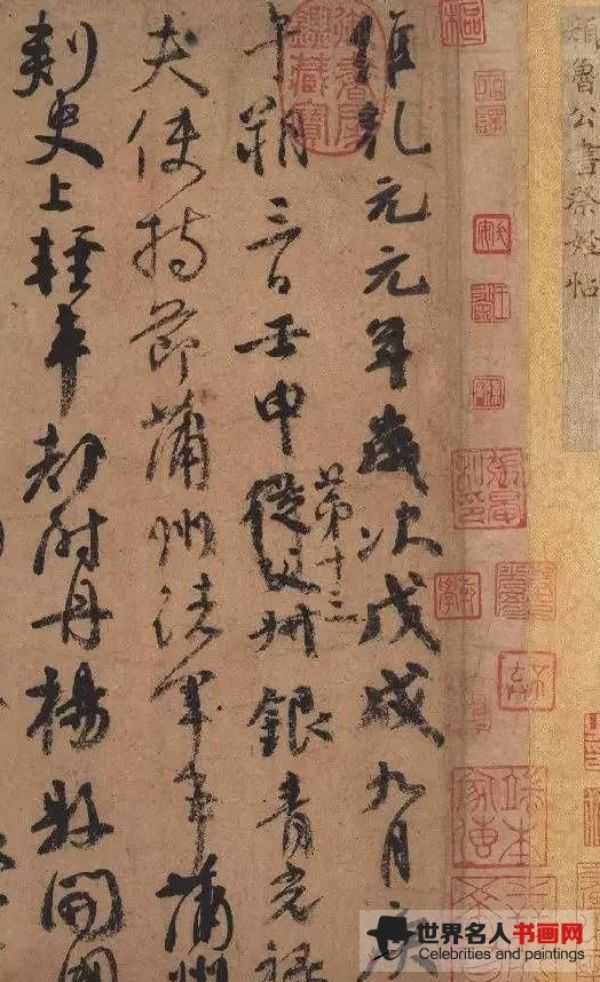 顏魯公書祭姪帖
維乾元元年歲次戊戌九月庚
午朔三日壬申從父叔銀青光祿
第十三
夫使持節蒲州諸軍事蒲州
刺史上輕車都尉丹楊縣開國
御書房鑑藏寶
端本家傳
世界名人书画网
Celebrities and paintings